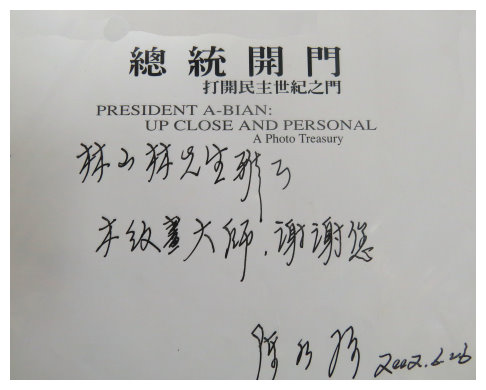 總統開門
打開民主世紀之門
PRESIDENT A-BIAN:
UP CLOSE AND PERSONAL
A Photo Treasury
林 林先生雅正
級畫大師，謝謝您
陳水扁 2002.6.26